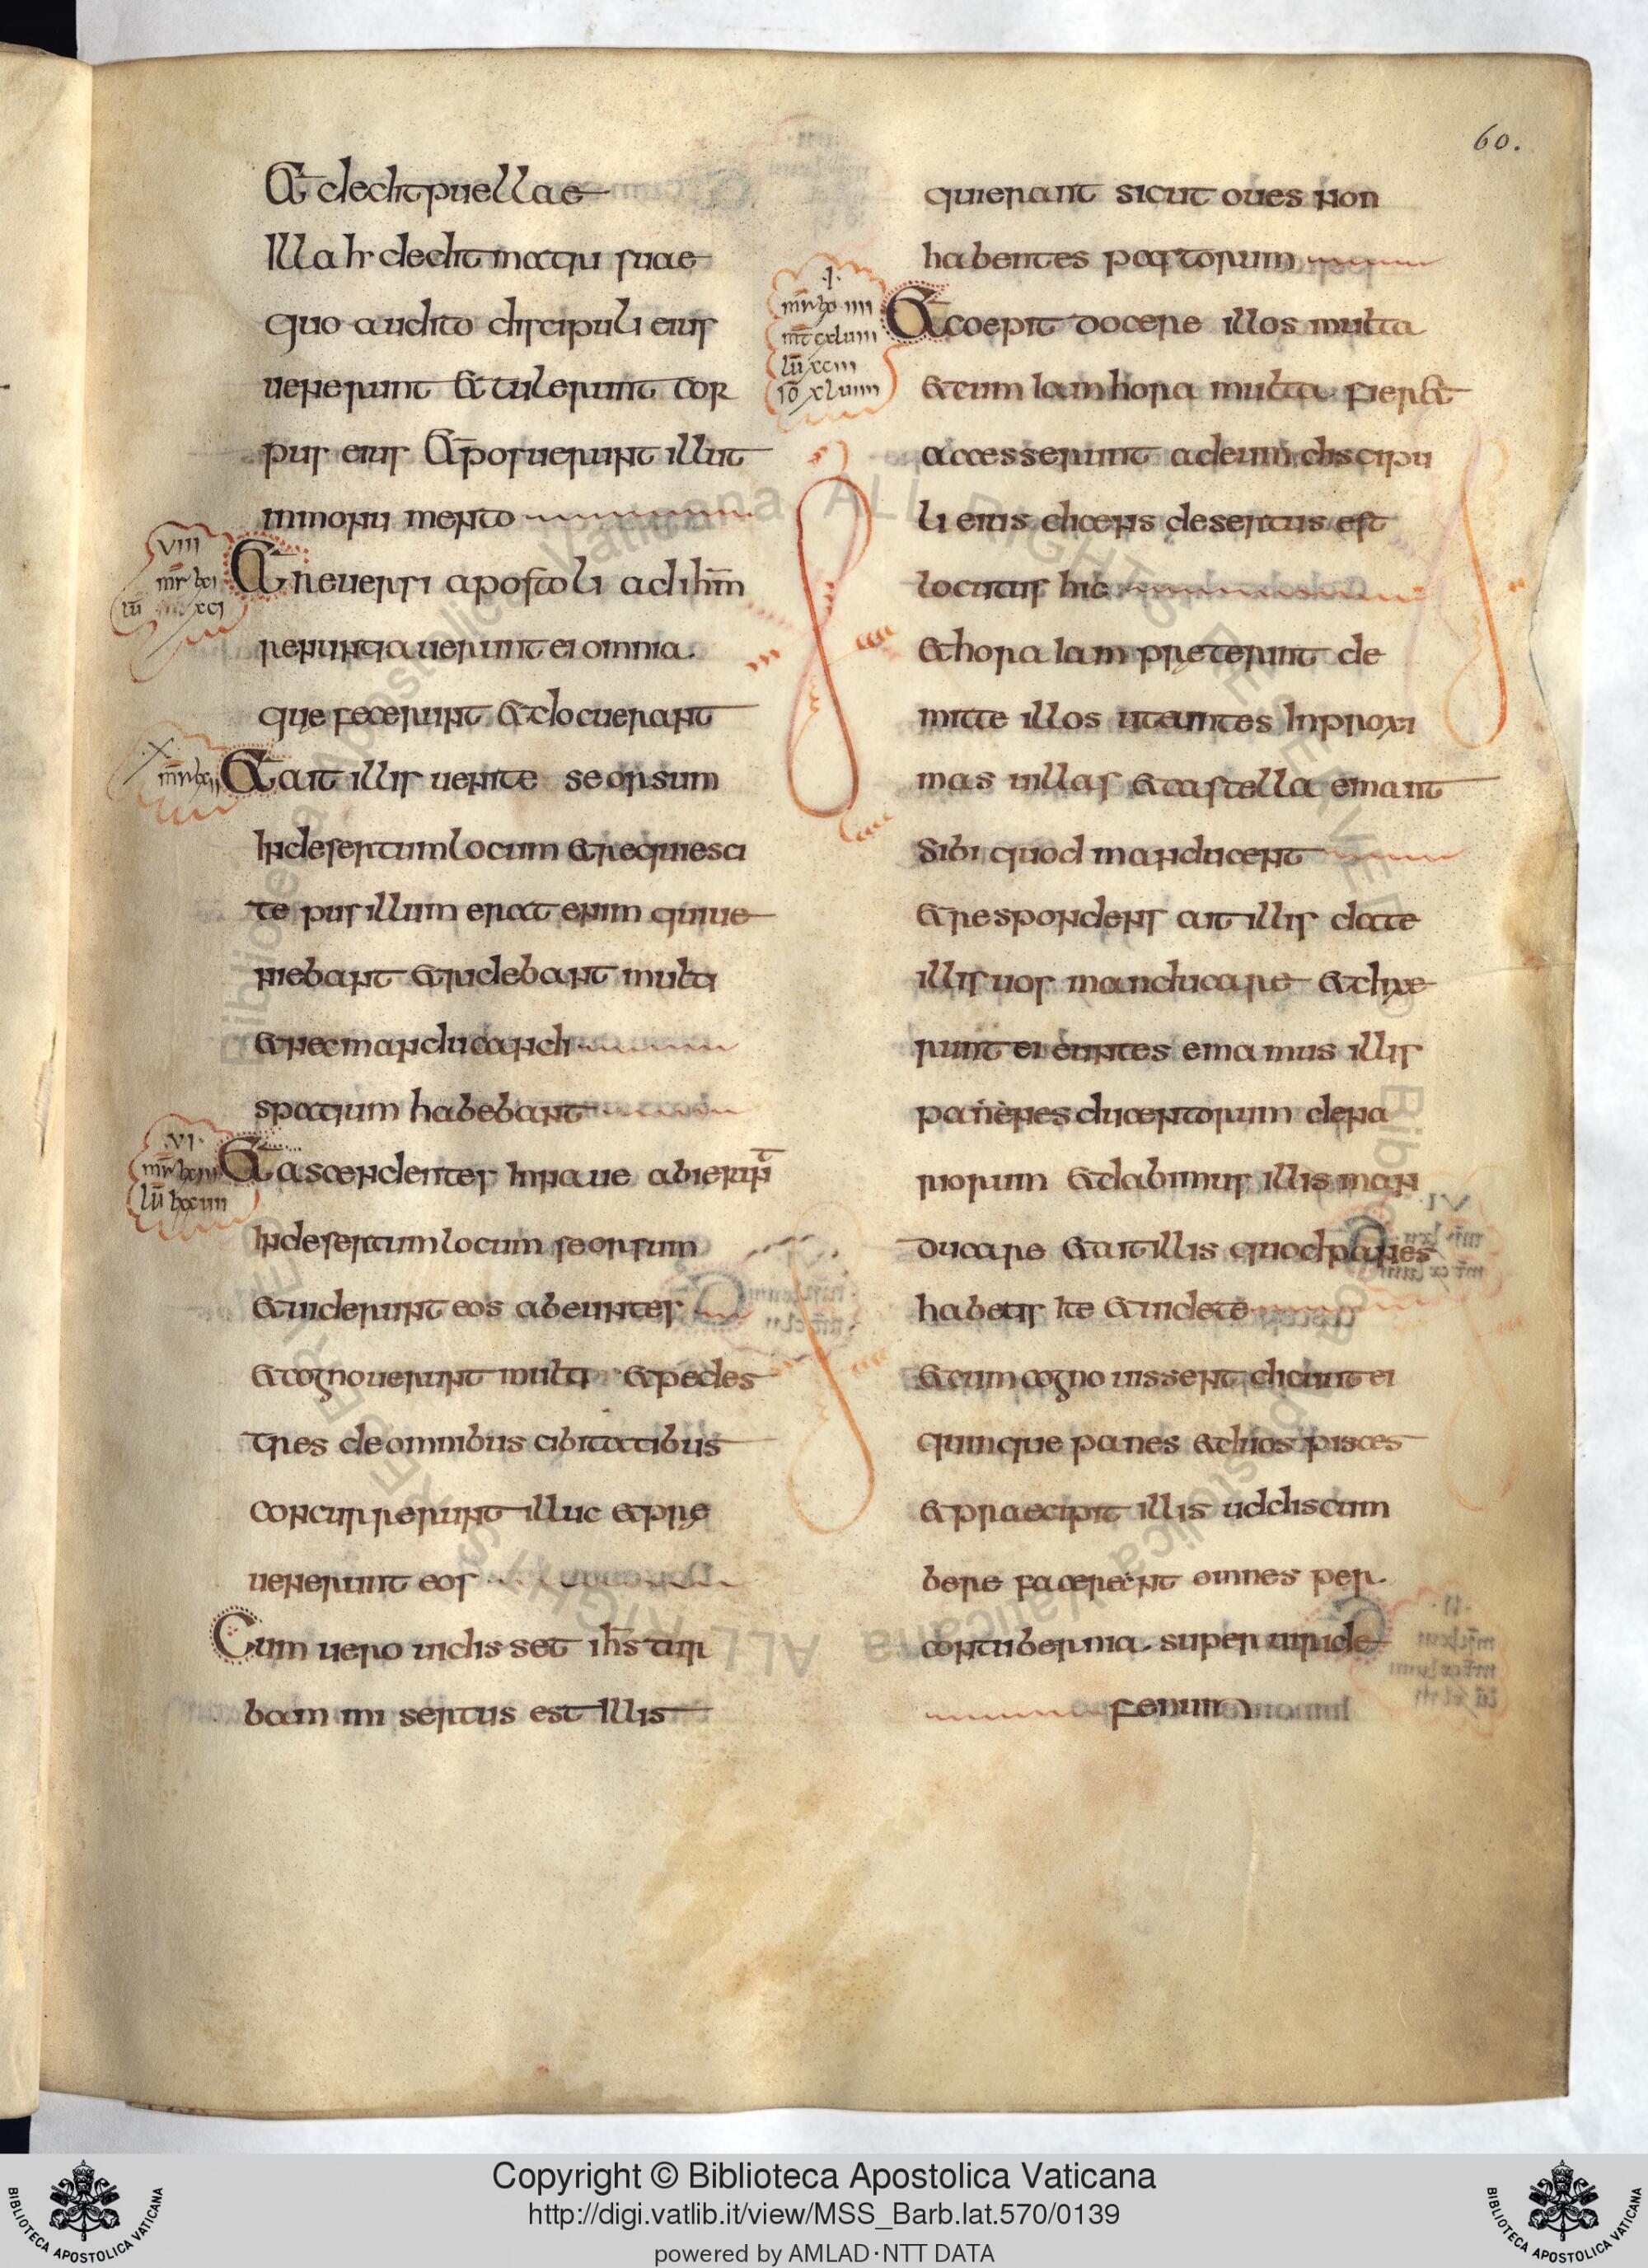 60.
Et dedit puellae
Illa hr dedit matri suae
quo audito discipuli eius
uenerunt et tulerunt cor
pus eius et posuerunt illut
in monu mento
VIII
mr lxi
lū xci
Et reuersi apostoli ad ihm̄
renuntiauerunt ei omnia.
quę fecerunt et docuerant
X
mr lxii
Et ait illis uenite seorsum
In desertum locum et requiesci
te pusillum erat enim qui ue
niebant et rediebant multi
et nec manducandi
spatium habebant
VI
mr lxiii
lū xcuii
Et ascendentes In naue abierun̄t
In desertum locum seorsum
et uiderunt eos abeuntes
et cognouerunt multi et pedes
tres de omnibus cibitatibus
concurrerunt illuc et prę
uenerunt eos
Cum uero uidisset ih̄s tur
bam misertus est Illis
qui erant sicut oues non
habentes pastorum
I
mr lxiiii
mt cxluii
lū xciii
iō xluiiii
Et coepit docere illos multa
et cum Iam hora multa fieret
accesserunt ad eum discipu
li eius dicens desertus est
locutus hic
et hora Iam preterunt de
mitte illos ut euntes In proxi
mas uillas et castella emant
sibi quod manducent
et respondens ait illis date
illis uos manducare et dixe
runt ei euntes emamus illis
panenes ducentorum dena
riorum et dabimus illis man
ducare et ait illis quod panes
habetis Ite et uidete
et cum cognouissent dicunt ei
quinque panes et duos pisces
et praecipit illis ud discum
bere facerent omnes per.
contubernia. super uiride
fenum
Copyright © Biblioteca Apostolica Vaticana
http://digi.vatlib.it/view/MSS_Barb.lat.570/0139
powered by AMLAD·NTT DATA
BIBLIOTECA APOSTOLICA VATICANA
BIBLIOTECA APOSTOLICA VATICANA